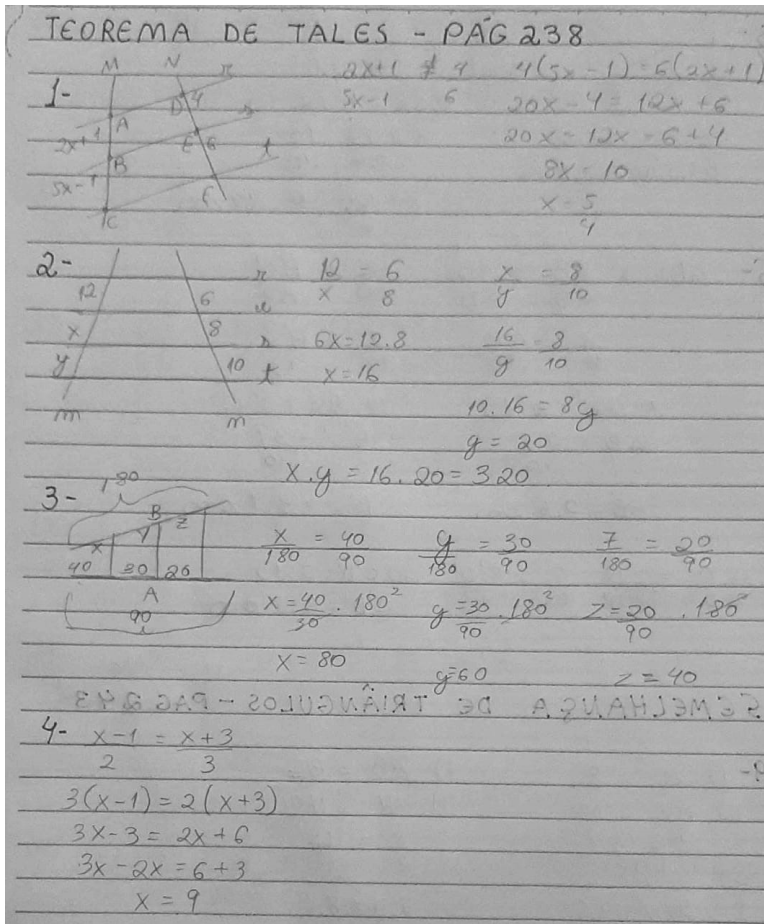 TEOREMA DE TALES - PÁG 238
1-
M N r
D 4 s
A
2x+1 E 6 t
B
5x-1 F
C
2x+1 ≠ 4
5x-1 6
4(5x-1)=6(2x+1)
20x-4=12x+6
20x-12x=6+4
8x=10
x=5
4
2-
12 6
x 8
y 10
m n
r
u
s
t
12 = 6
x 8
6x=12.8
x=16
x = 8
y 10
16 = 8
y 10
10.16=8y
y=20
x.y=16.20=320
3-
180
B
x y z
40 30 20
A
90
x = 40
180 90
x=40 . 180²
30
x=80
y = 30
180 90
y=30 . 180²
90
y=60
z = 20
180 90
z=20 . 180
90
z=40
SEMELHANÇA DE TRIÂNGULOS - PÁG 243
4- x-1 = x+3
2 3
3(x-1)=2(x+3)
3x-3=2x+6
3x-2x=6+3
x=9